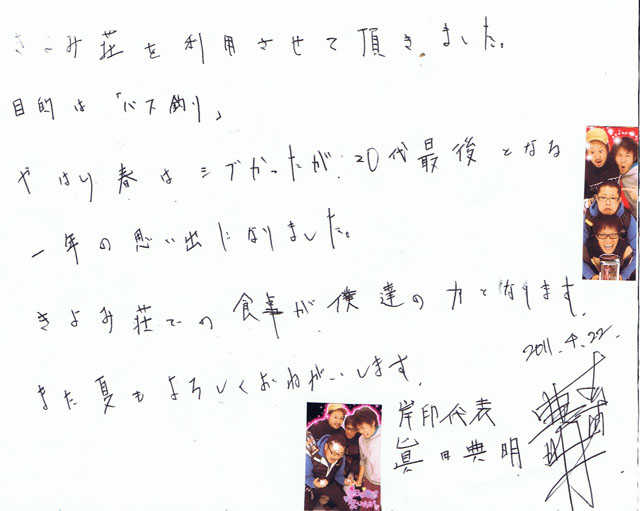 きよみ荘を利用させて頂きました。
目的は「バス釣り」
やはり春はシブかったが、20代最後となる
一年の思い出になりました。
きよみ荘での食事が僕達の力となります。
また夏もよろしくおねがいします。
2011.4.22.
岸印代表
眞田典明